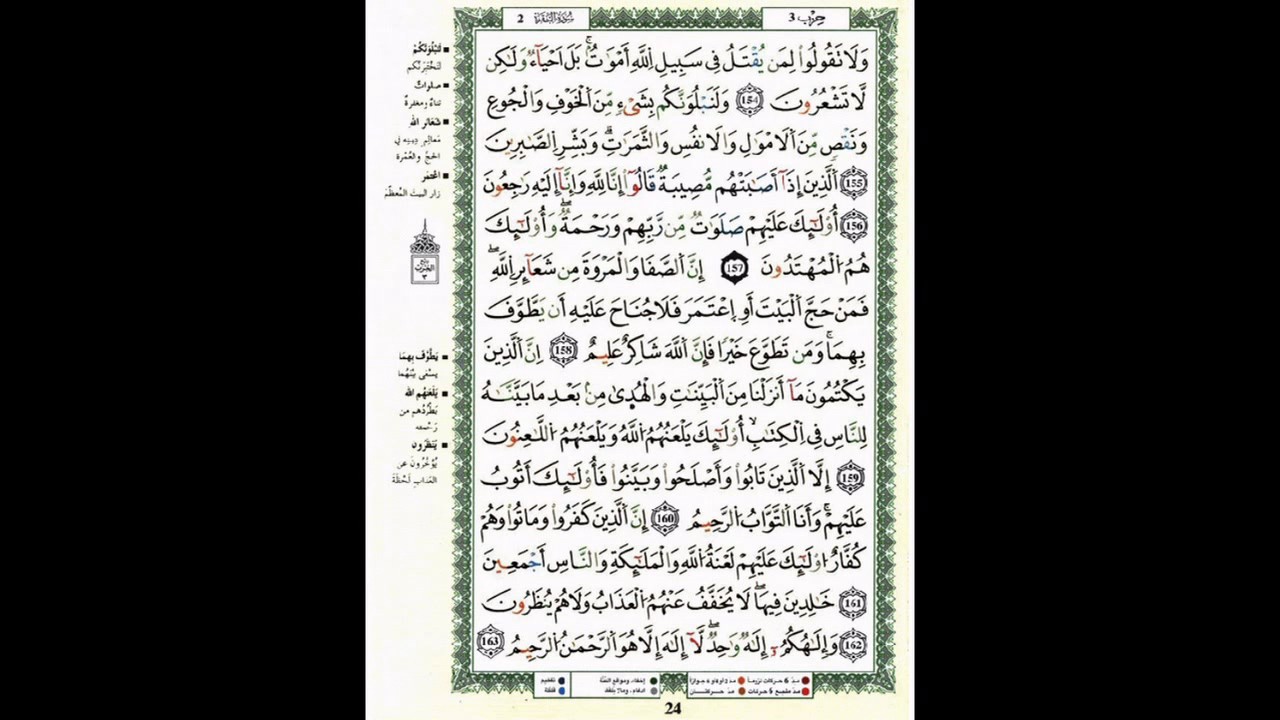 حِزْب 3
سُورَةُ البَقَرَة 2
وَلَا تَقُولُوا۟ لِمَن يُقْتَلُ فِى سَبِيلِ اِللَّهِ أَمْوَٰتٌۢ ۚ بَلَ اَحْيَآءٌ وَلَٰكِن
لَّا تَشْعُرُونَ 154 وَلَنَبْلُوَنَّكُم بِشَىْءٍ مِّنَ اَلْخَوْفِ وَالْجُوعِ
وَنَقْصٍ مِّنَ اَلَامْوَٰلِ وَالَانفُسِ وَالثَّمَرَٰتِ ۗ وَبَشِّرِ اِلصَّٰبِرِينَ
155 اَلَّذِينَ إِذَآ أَصَٰبَتْهُم مُّصِيبَةٌ قَالُوٓا۟ إِنَّا لِلَّهِ وَإِنَّآ إِلَيْهِ رَٰجِعُونَ
156 أُوْلَٰٓئِكَ عَلَيْهِمْ صَلَوَٰتٌ مِّن رَّبِّهِمْ وَرَحْمَةٌ ۖ وَأُوْلَٰٓئِكَ
هُمُ اُلْمُهْتَدُونَ 157 إِنَّ اَلصَّفَا وَالْمَرْوَةَ مِن شَعَآئِرِ اِللَّهِ ۖ
فَمَنْ حَجَّ اَلْبَيْتَ أَوِ اِعْتَمَرَ فَلَا جُنَاحَ عَلَيْهِ أَن يَطَّوَّفَ
بِهِمَا ۚ وَمَن تَطَوَّعَ خَيْرًا فَإِنَّ اَللَّهَ شَاكِرٌ عَلِيمٌ 158 اِنَّ اَلَّذِينَ
يَكْتُمُونَ مَآ أَنزَلْنَا مِنَ اَلْبَيِّنَٰتِ وَالْهُدَىٰ مِنۢ بَعْدِ مَا بَيَّنَّٰهُ
لِلنَّاسِ فِى اِلْكِتَٰبِ أُوْلَٰٓئِكَ يَلْعَنُهُمُ اُللَّهُ وَيَلْعَنُهُمُ اُللَّٰعِنُونَ
159 إِلَّا اَلَّذِينَ تَابُوا۟ وَأَصْلَحُوا۟ وَبَيَّنُوا۟ فَأُوْلَٰٓئِكَ أَتُوبُ
عَلَيْهِمْ ۚ وَأَنَا اَلتَّوَّابُ اُلرَّحِيمُ 160 إِنَّ اَلَّذِينَ كَفَرُوا۟ وَمَاتُوا۟ وَهُمْ
كُفَّارٌ اُوْلَٰٓئِكَ عَلَيْهِمْ لَعْنَةُ اُللَّهِ وَالْمَلَٰٓئِكَةِ وَالنَّاسِ أَجْمَعِينَ
161 خَٰلِدِينَ فِيهَا ۖ لَا يُخَفَّفُ عَنْهُمُ اُلْعَذَابُ وَلَا هُمْ يُنظَرُونَ
162 وَإِلَٰهُكُمُۥٓ إِلَٰهٌ وَٰحِدٌ ۖ لَّآ إِلَٰهَ إِلَّا هُوَ اَلرَّحْمَٰنُ اُلرَّحِيمُ 163
لَنَبْلُوَنَّكُمْ
لَنَخْتَبِرَنَّكم
صلوات
ثناءٌ ومغفرةٌ
شعائر الله
معالِم دِينِه في
الحجّ والعُمْرة
اعتمر
زار البيتَ المُعظّم
يَطَّوَّف بِهِمَا
يسْعَى بينَهُما
يَلْعَنُهم الله
يَطْرُدُهم من
رَحْمته
يُنظَرُون
يُؤَخَّرُونَ عن
العَذابِ لَحْظَةً
مدّ 6 حركات لزوماً
مدّ 2 أو 4 أو 6 جوازاً
إخفاء، ومواقع الغنّة
تفخيم
مدّ مشبع 6 حركات
مدّ حركتان
ادغام، وما لا يُلفظ
قلقلة
24